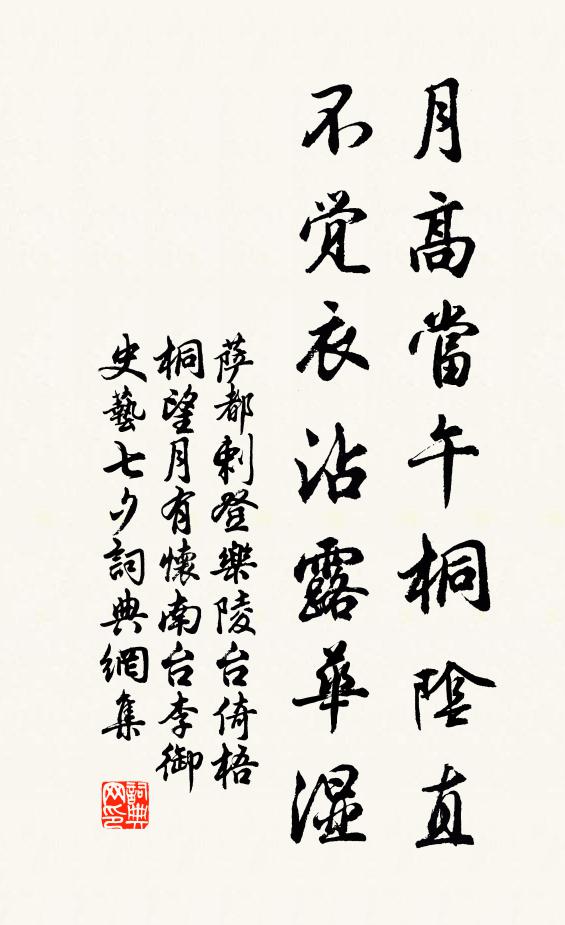 月高當午桐陰直
不覚衣沾露華湿
萨都剌登樂陵台倚梧
桐望月有懷南台李御
史藝七夕詞典網集
詞典网印